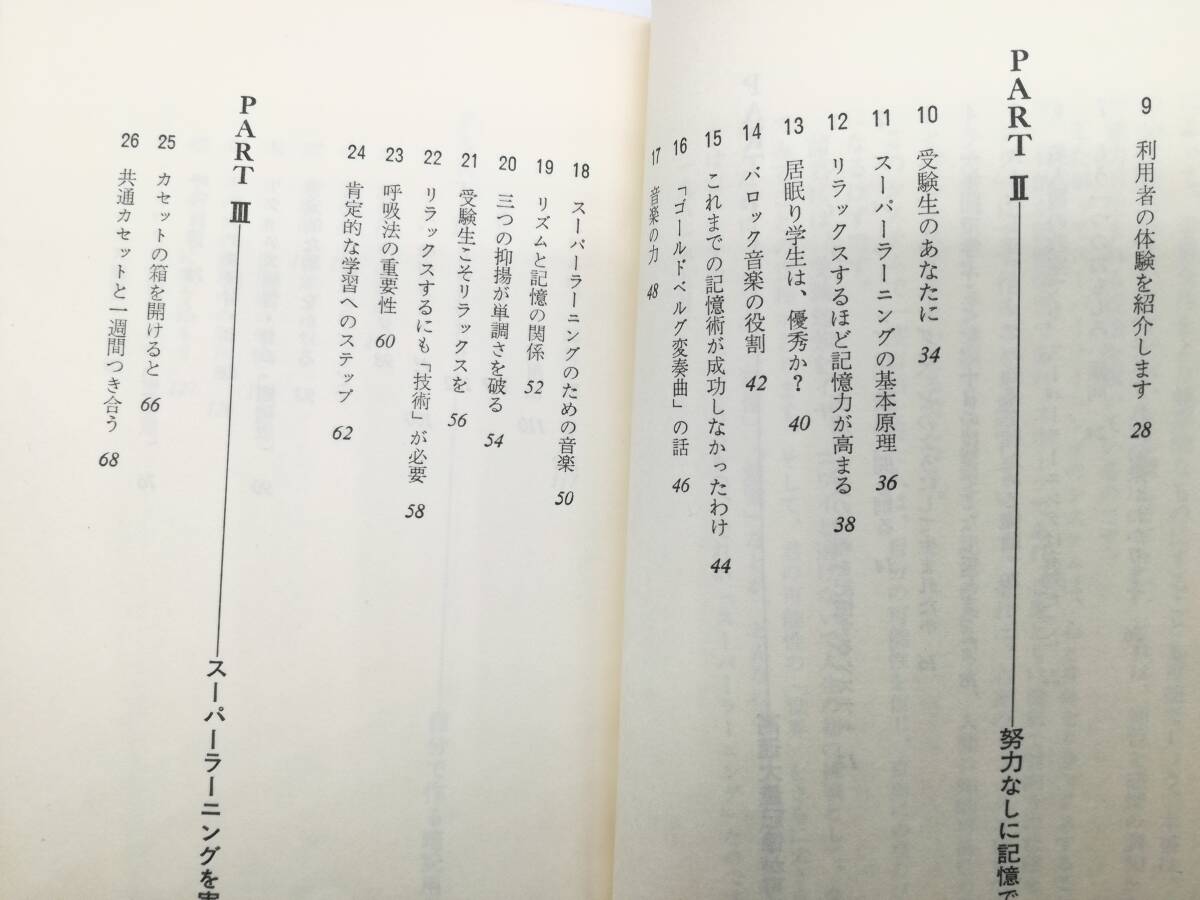 9 利用者の体験を紹介します 28
PART Ⅱ——努力なしに記憶で
10 受験生のあなたに 34
11 スーパーラーニングの基本原理 36
12 リラックスするほど記憶力が高まる 38
13 居眠り学生は、優秀か? 40
14 バロック音楽の役割 42
15 これまでの記憶術が成功しなかったわけ 44
16 「ゴールドベルグ変奏曲」の話 46
17 音楽の力 48
18 スーパーラーニングのための音楽 50
19 リズムと記憶の関係 52
20 三つの抑揚が単調さを破る 54
21 受験生こそリラックスを 56
22 リラックスするにも「技術」が必要 58
23 呼吸法の重要性 60
24 肯定的な学習へのステップ 62
PART Ⅲ——スーパーラーニングを実
25 カセットの箱を開けると 66
26 共通カセットと一週間つき合う 68